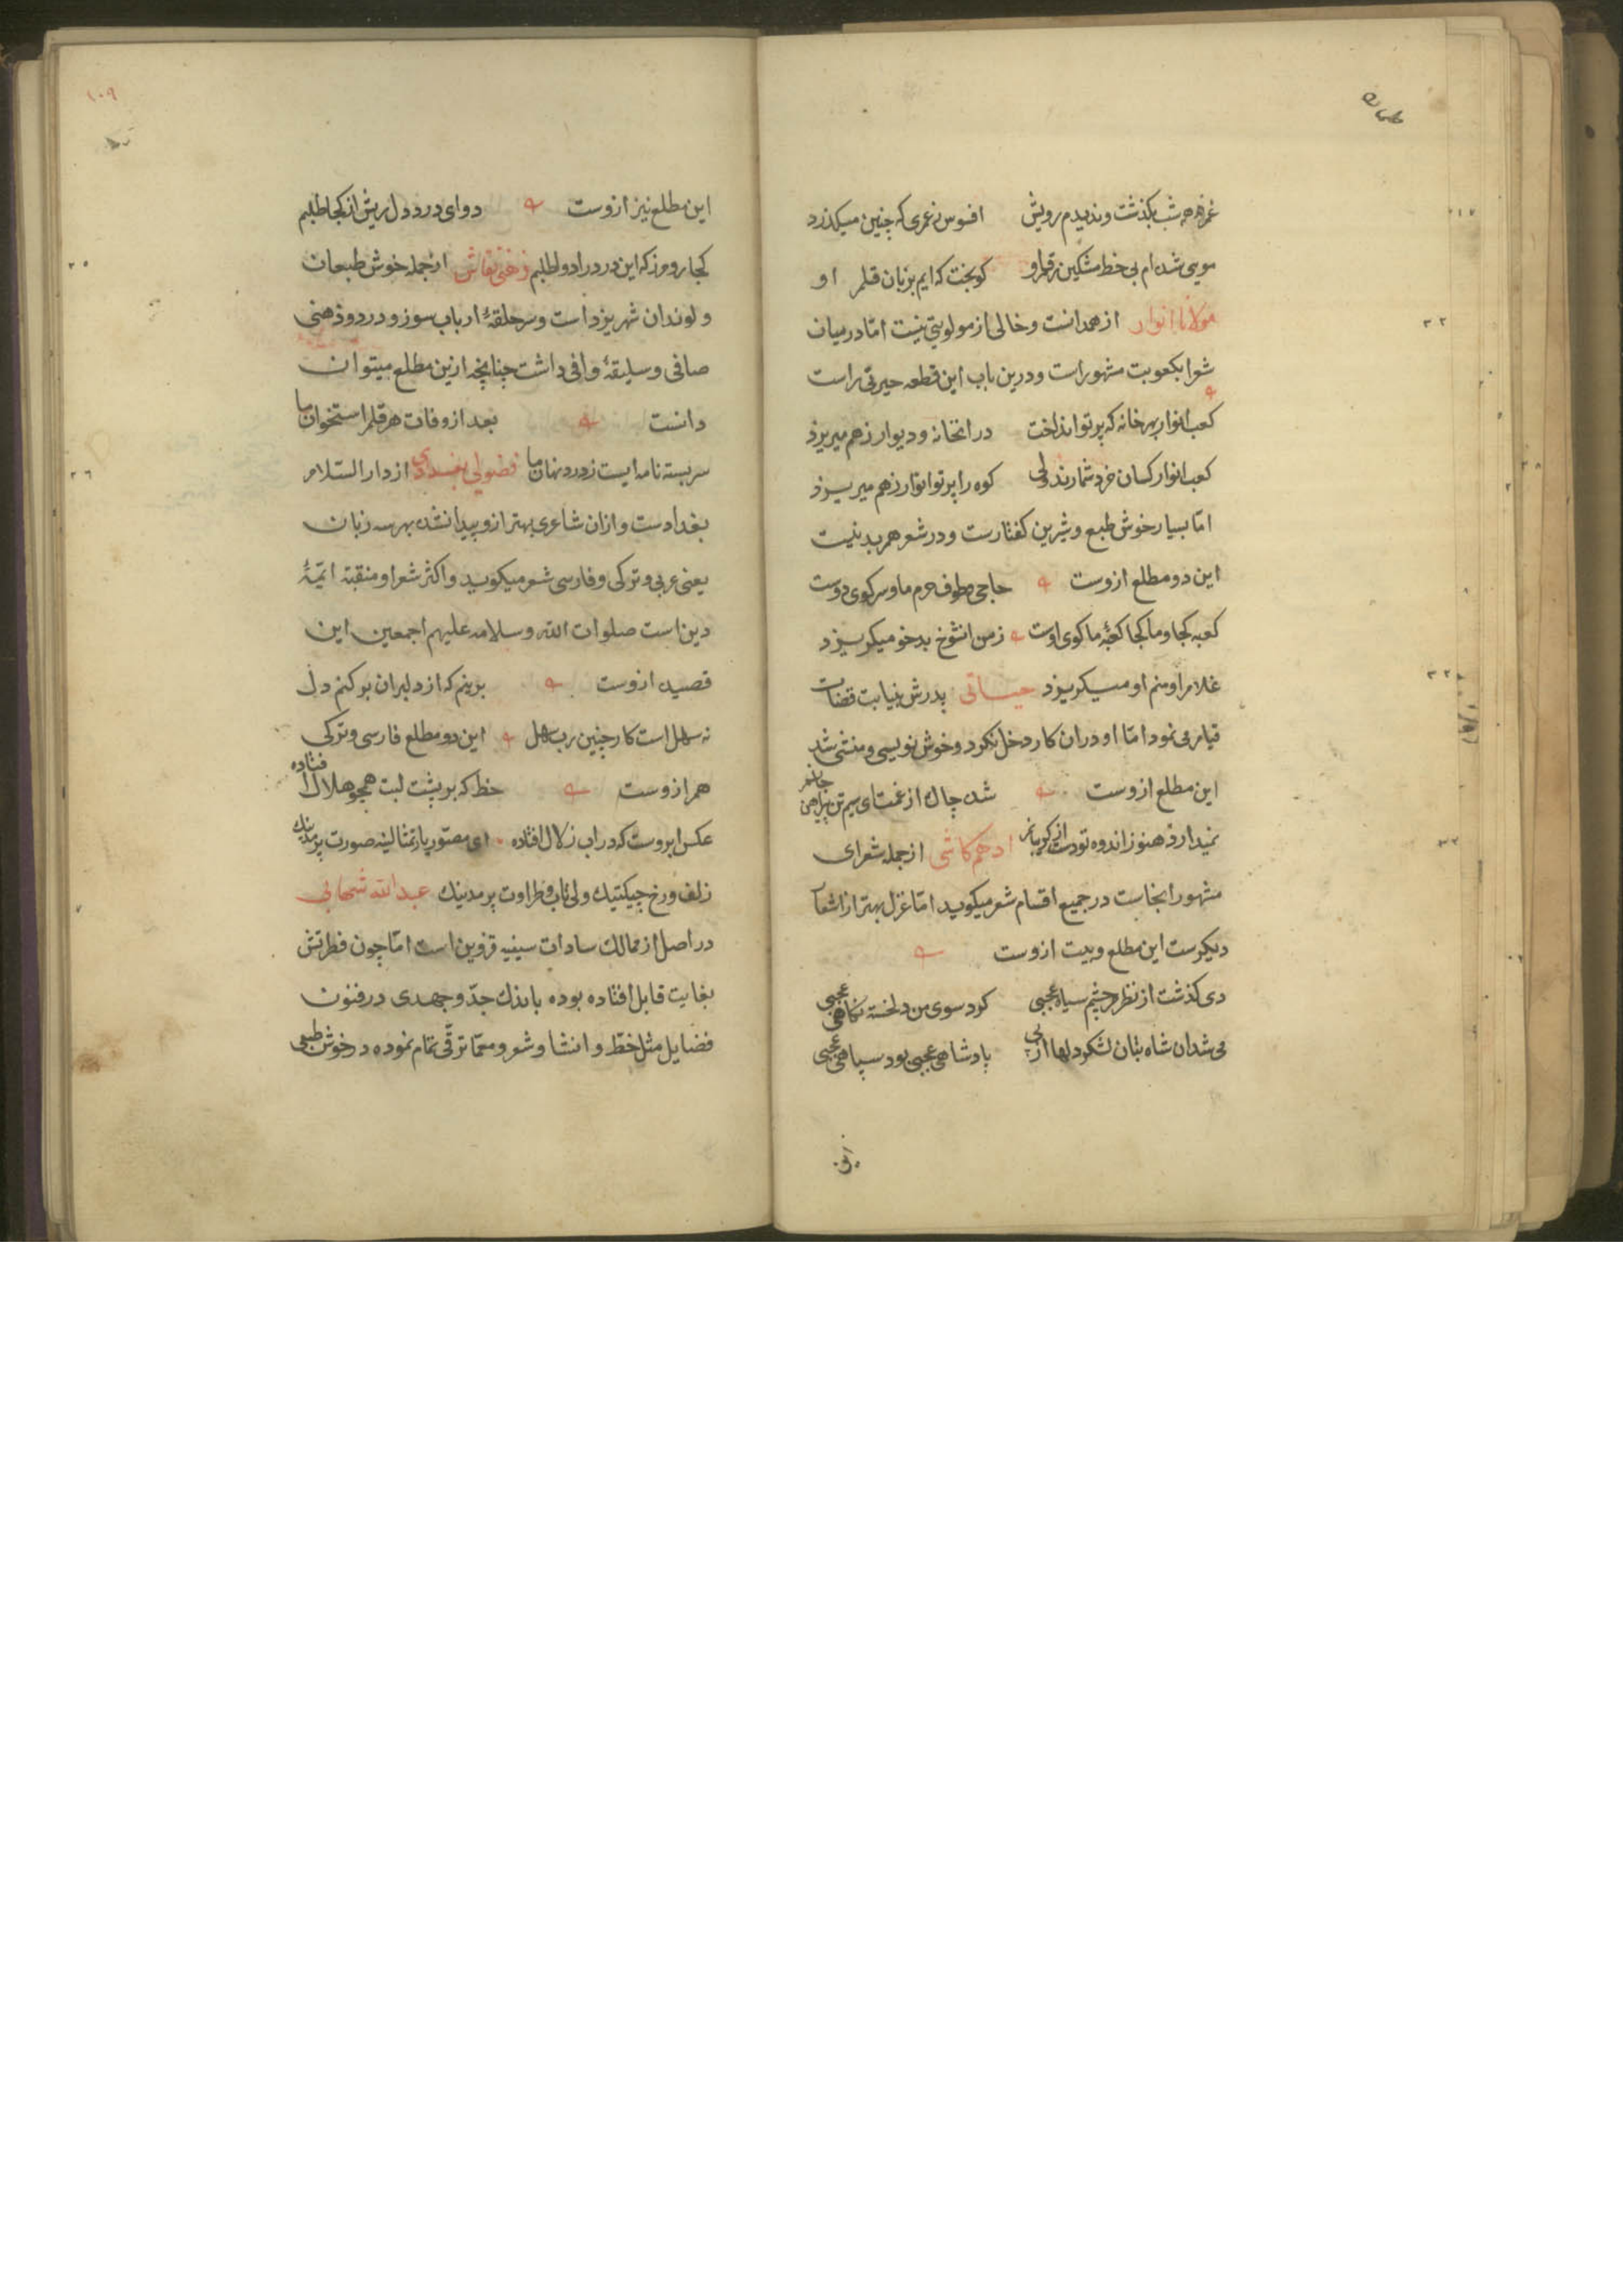 عمرم همه شب بگذشت و ندیدم رویش افسوس ز عمری که چنین میکذرد
مویی شده ام بی خط مشکین رقم او کو بخت که ایم بزبان قلم او
مولانا انوار از همدانست و خالی از مولویتی نیست اما در میان
شعرا بکعوبت مشهور است و درین باب این قطعه حیرتی راست
کعب انوار بهر خانه که پرتو انداخت در انخانه و دیوار زهم میریزد
کعب انوار کسان خرد شمارند ولی کوه را پرتو انوار زهم میریزد
اما بسیار خوش طبع و شیرین کفتارست و در شعر هم بد نیست
این دو مطلع ازوست حاجی و طوف حرم ما و سر کوی دوست
کعبه کجا و ما کجا کعبهٔ ما کوی اوست زمن انشوخ بدخو میکریزد
غلام او منم او میکریزد حیاتی پدرش بنیابت قضات
قیام می نمود اما او دران کار دخل نکرد و خوش نویسی و منشی شد
این مطلع ازوست شده چاک از غمت ای سیم تن پیراهن جانم
نمیدارد هنوز اندوه تو دست از کریبانم ادهم کاشی از جمله شعرای
مشهور انجاست در جمیع اقسام شعر میکوید اما غزل بهتر از اشعار
دیکرست این مطلع و بیت ازوست
دی کذشت از نظرم چشم سیاه عجبی کرد سوی من دلخسته نکاهی عجبی
می شد ان شاه بتان لشکر دلها از پی پادشاهی عجبی بود سپاهی عجبی
۱۰۹
این مطلع نیز ازوست دوای درد دل ریش از کجا طلبم
کجا روم ز که این درد را دوا طلبم ذهنی نقاش از جمله خوش طبعان
و لوندان شهر یزد است و سر حلقهٔ ارباب سوز و درد و ذهنی
صافی و سلیقهٔ وافی داشت چنانچه ازین مطلع میتوان
دانست بعد از وفات هر قلم استخوان ما
سر بسته نامه ایست ز درد نهان ما فضولی بغدادی از دار السلام
بغدادست و ازان شاعری بهتر ازو پیدا نشده بهر سه زبان
یعنی عربی و ترکی و فارسی شعر میکوید و اکثر شعر او منقبة ائمهٔ
دین است صلوات الله و سلامه علیهم اجمعین این
قصیده ازوست برینم که از دلبران بر کنم دل
نه سهل است کار چنین رب سهل این دو مطلع فارسی و ترکی
هم ازوست خط که بر پشت لبت همچو هلال افتاده
عکس ابروست که در اب زلال افتاده ای مصور یار تمثالینه صورت یرمدینك
زلف و رخ چیکتینك ولی تاب و طراوت یرمدینك عبدالله شهابی
در اصل از ممالك سادات سیفیه قزوین است اما چون فطرتش
بغایت قابل افتاده بوده باندك جد و جهدی در فنون
فضایل مثل خط و انشا و شعر و معما ترقی تمام نموده در خوش طبعی